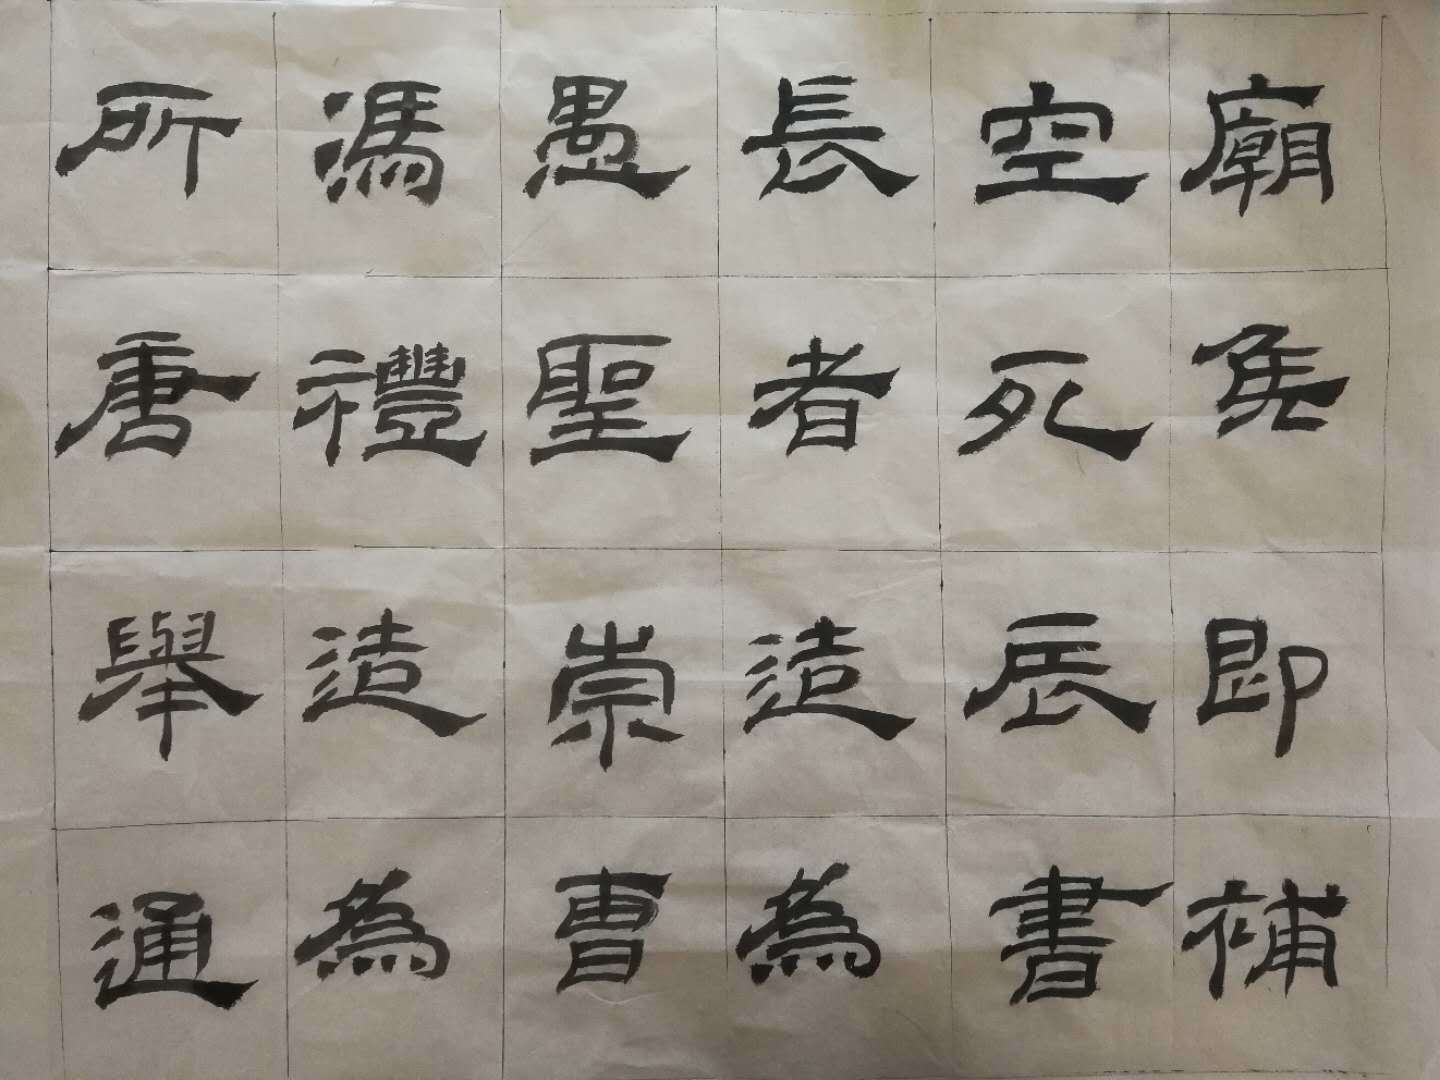 廟隽即補
空死辰書
長者造為
愚聖崇曹
馮禮造為
所唐舉通